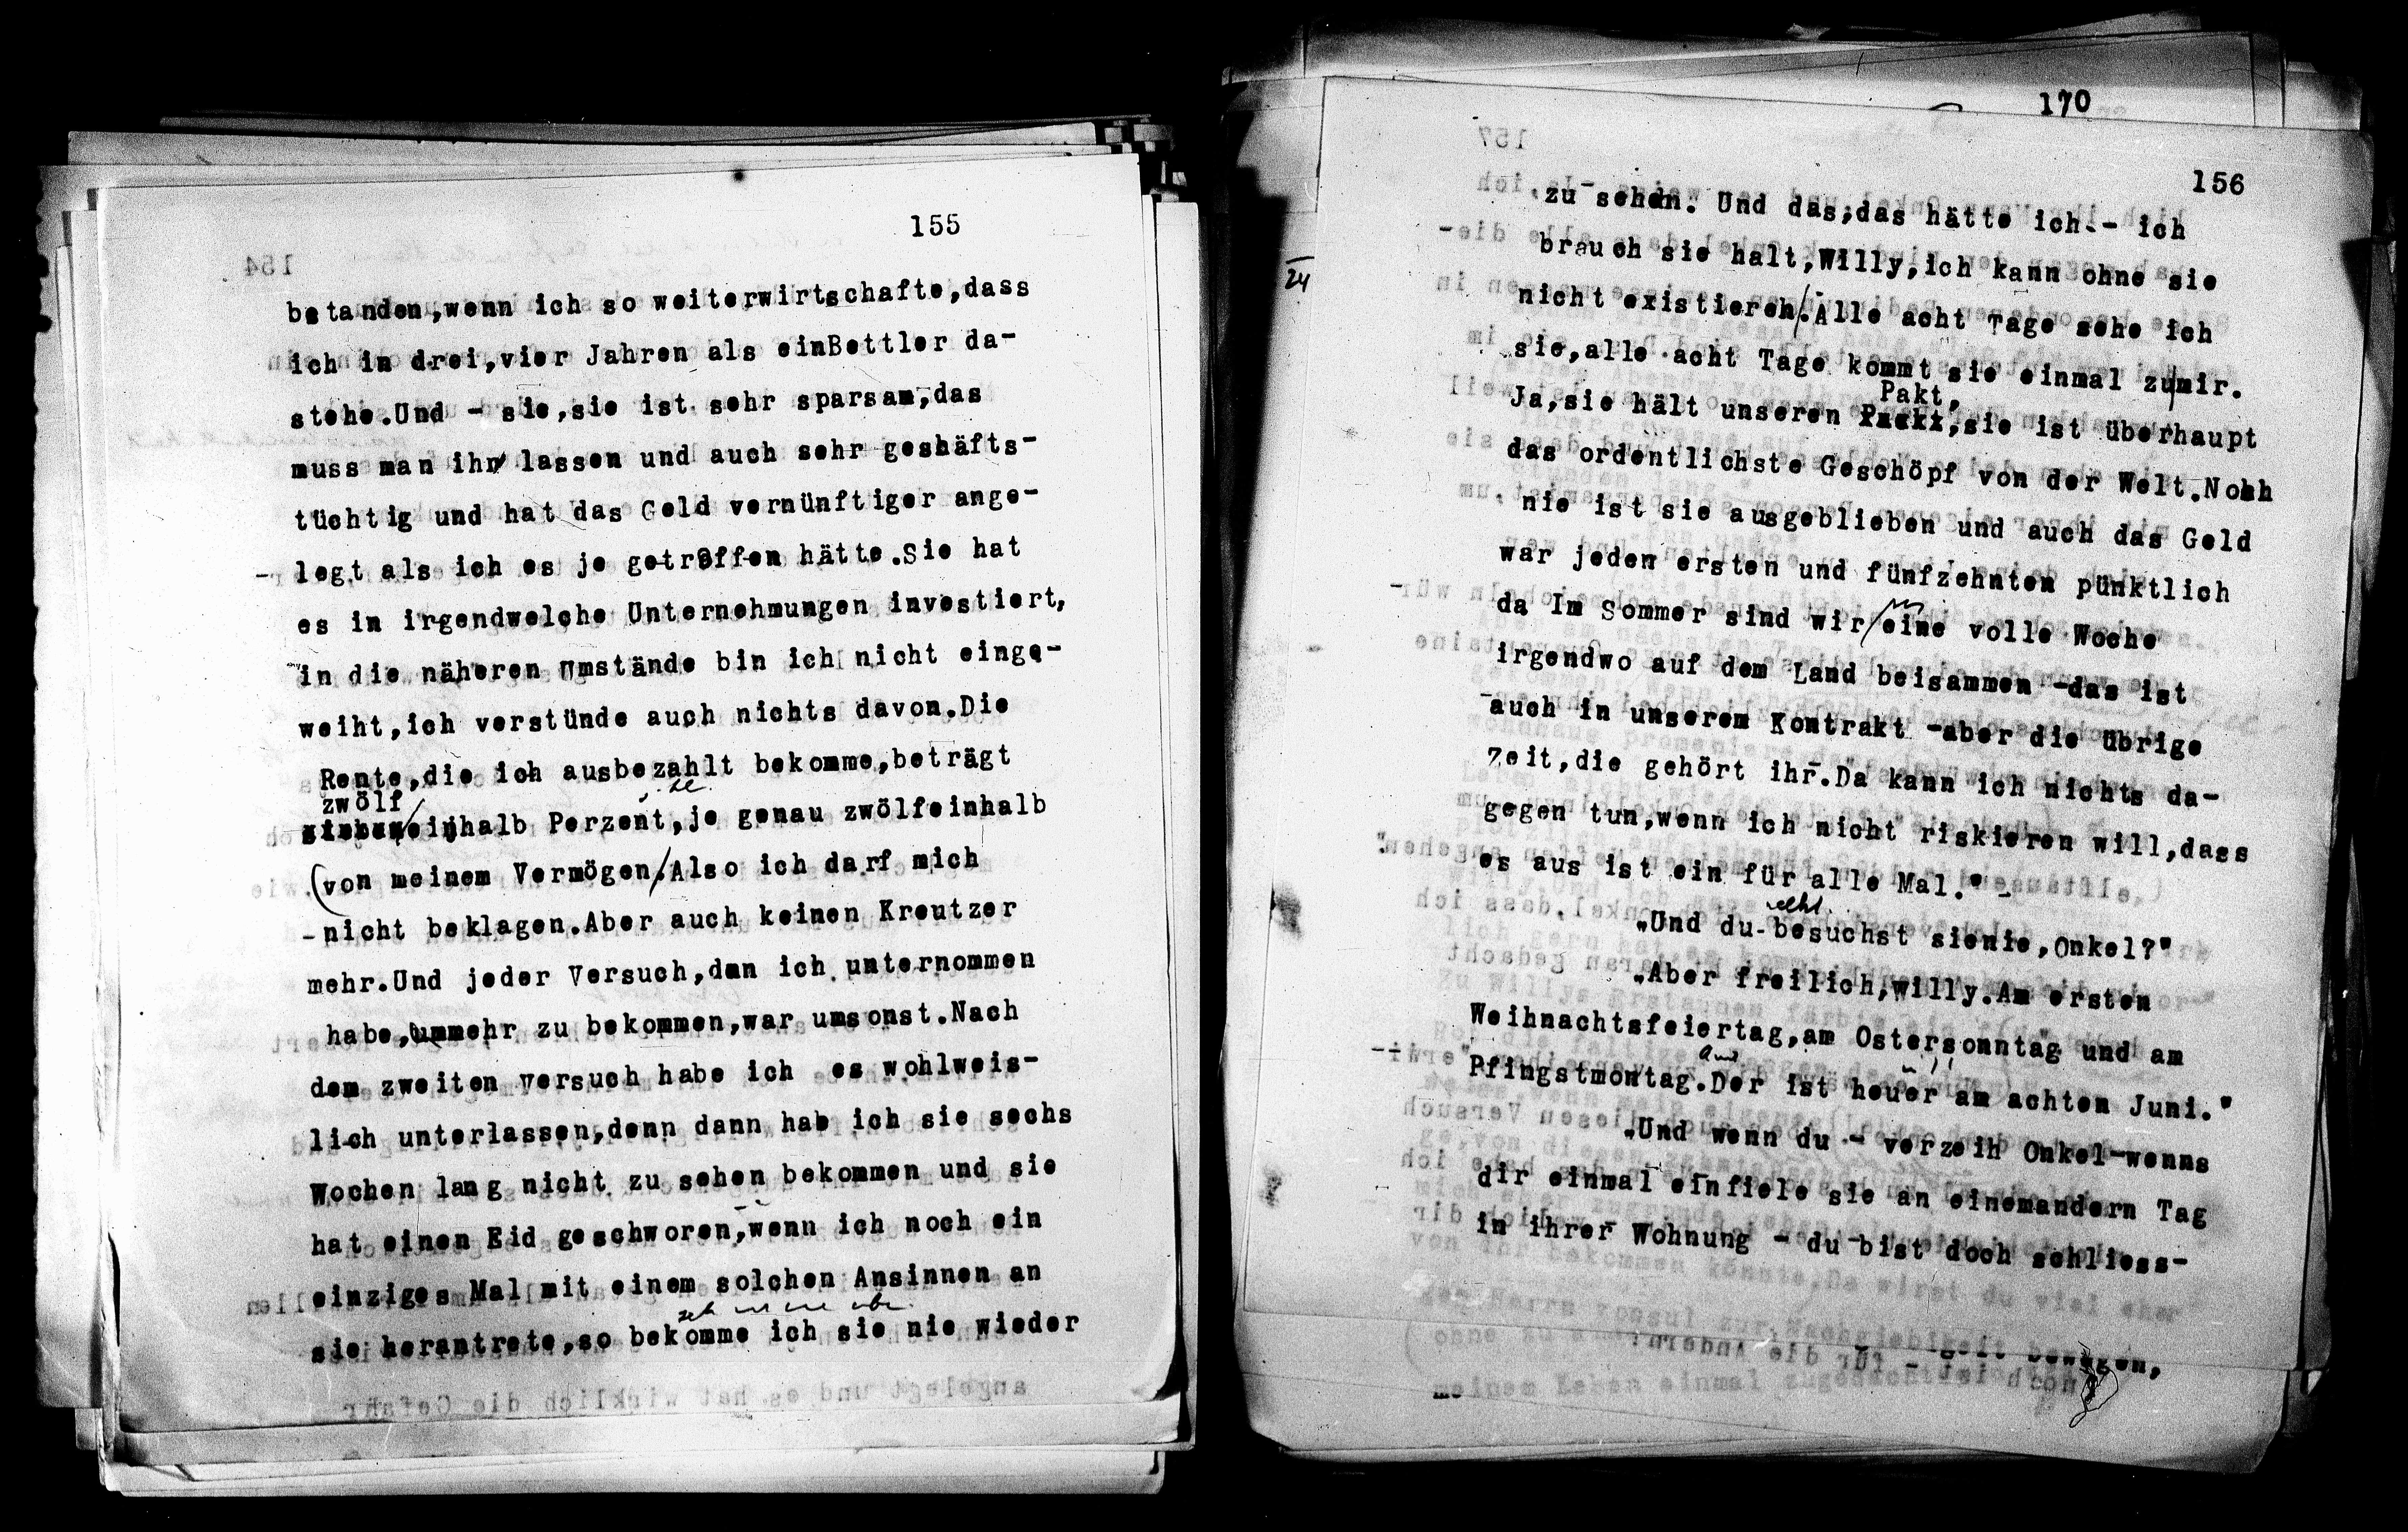 155
bstanden,wenn ich so weiterwirtschafte,dass
ich in drei,vier Jahren als einBettler da-
stehe.Und - sie,sie ist sehr sparsam,das
muss man ihr lassen und auch sehr geshäfts-
tüchtig und hat das Geld vernünftiger ange-
legt als ich es je getroffen hätte.Sie hat
es in irgendwelche Unternehmungen investiert,
in die näheren Umstände bin ich nicht einge-
weiht,ich verstünde auch nichts davon.Die
Rente,die ich ausbezahlt bekomme,beträgt
zwölf
einhalb Perzent,je genau zwölfeinhalb
(von meinem Vermögen.Also ich darf mich
nicht beklagen.Aber auch keinen Kreutzer
mehr.Und jeder Versuch,dan ich unternommen
habe,ummehr zu bekommen,war umsonst.Nach
dem zweiten Versuch habe ich es wohlweis-
lich unterlassen,denn dann hab ich sie sechs
Wochen lang nicht zu sehen bekommen und sie
hat einen Eid geschworen,wenn ich noch ein
einziges Mal mit einem solchen Ansinnen an
sie herantrete,so bekomme ich sie nie wieder
170
156
zu sehen. Und das,das hätte ich - ich
24
brauch sie halt,Willy,ich kann ohne sie
nicht existieren.Alle acht Tage sehe ich
sie,alle acht Tage kommt sie einmal zu|mir.
Pakt,
Ja,sie hält unseren sie ist überhaupt
das ordentlichste Geschöpf von der Welt.Nohh
nie ist sie ausgeblieben und auch das Geld
war jeden ersten und fünfzehnten pünktlich
da Im Sommer sind wir/eine volle Woche
irgendwo auf dem Land beisammen -das ist
auch in unserem Kontrakt -aber die übrige
Zeit,die gehört ihr.Da kann ich nichts da-
gegen tun,wenn ich nicht riskieren will,dass
es aus ist ein für alle Mal."
„Und du besuchst sienie,Onkel?"
„Aber freilich,Willy.Am ersten
Weihnachtsfeiertag,am Ostersonntag und am
Pfingstmontag.Der ist heuer am achten Juni."
„Und wenn du - verzeih Onkel-wenns
dir einmal einfiele sie an einemandern Tag
in ihrer Wohnung - du bist doch schliess-